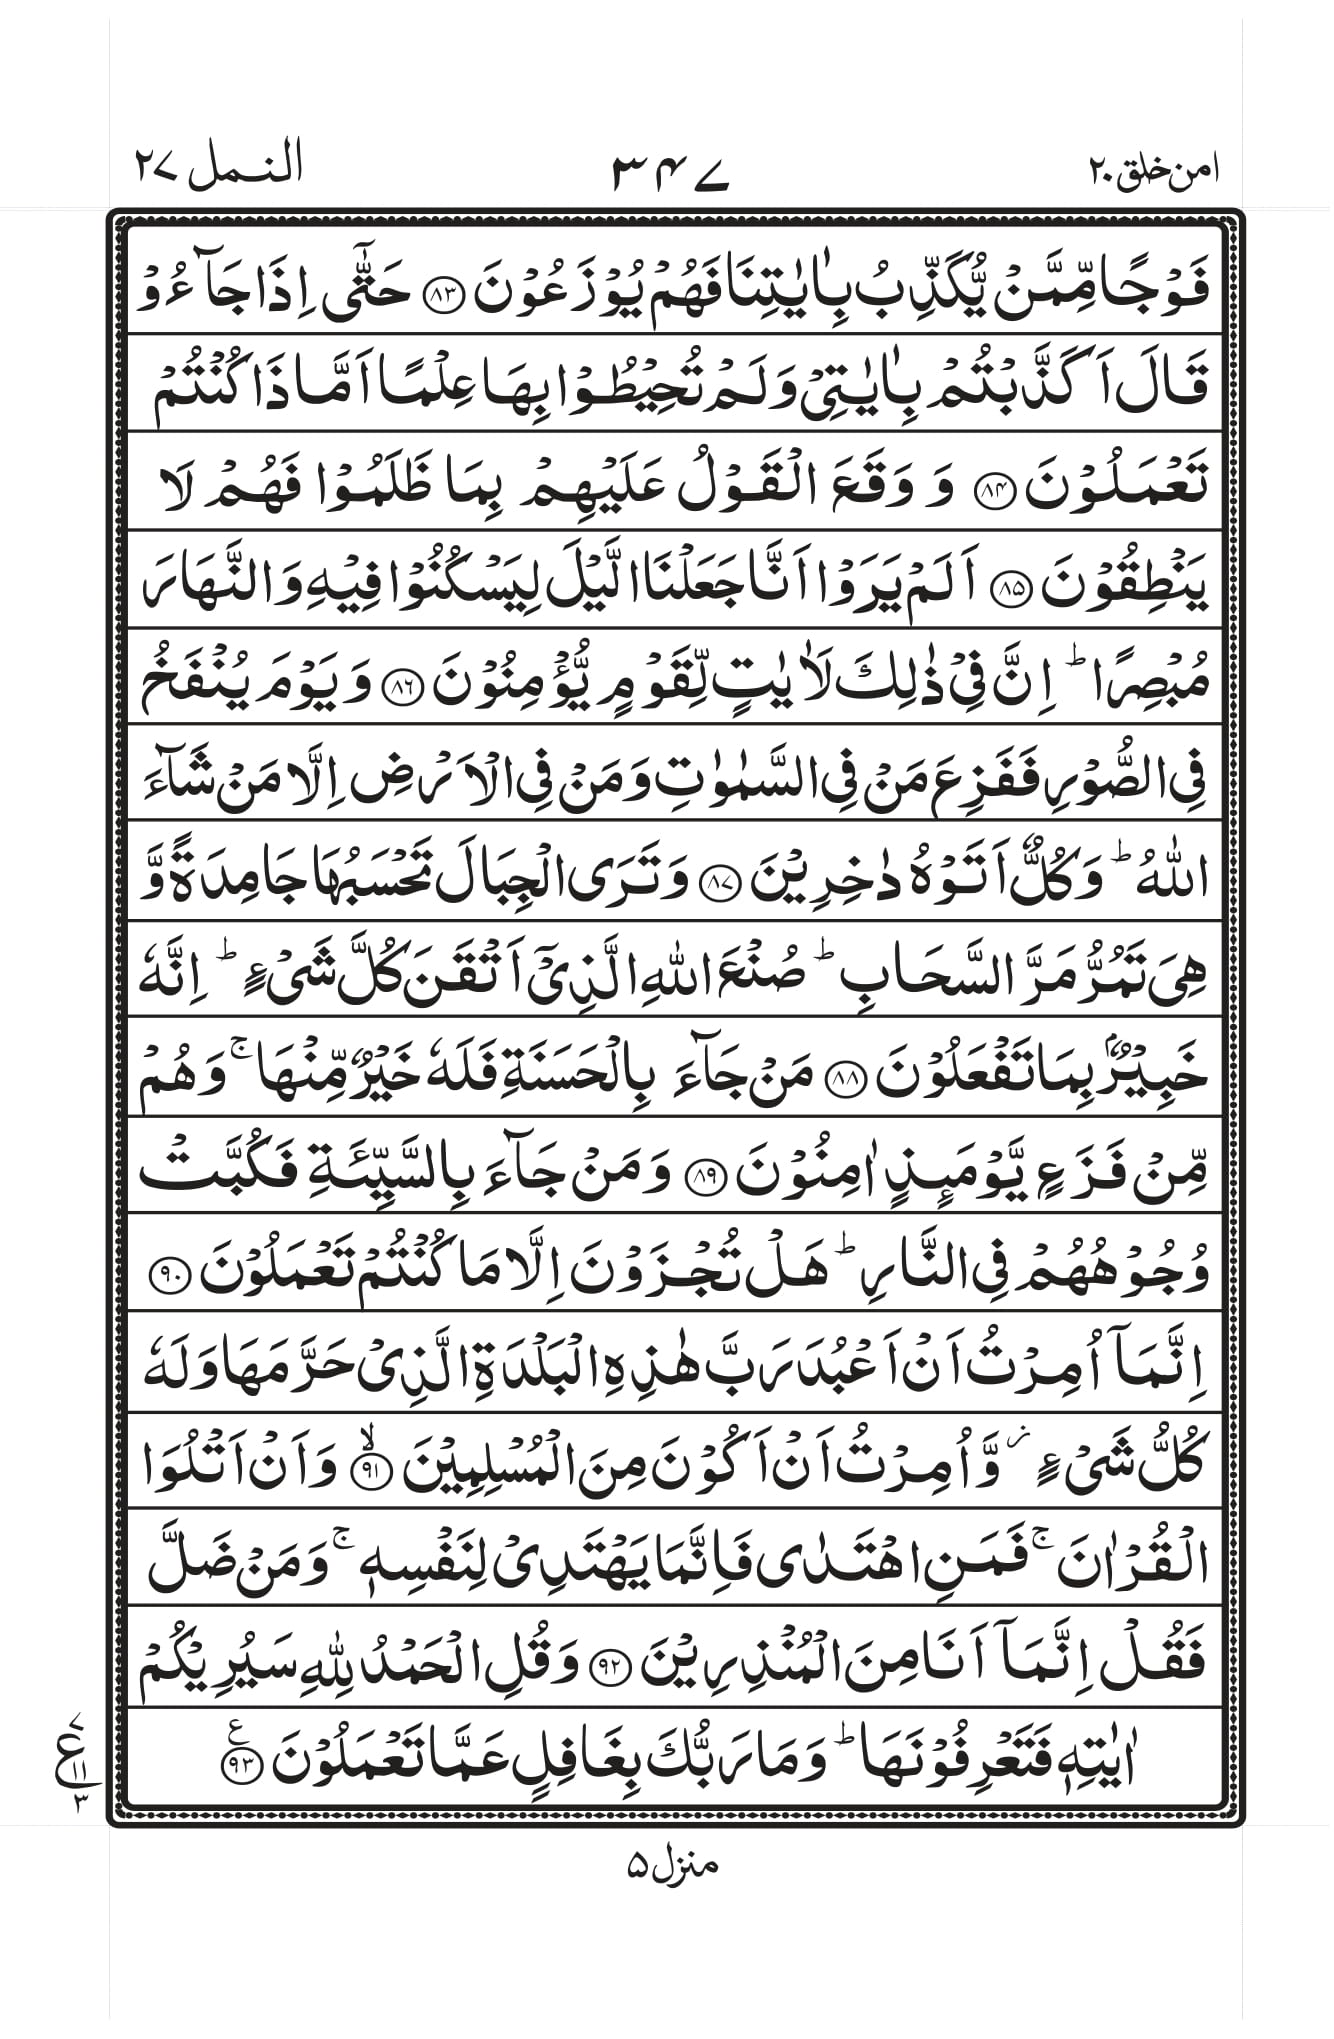 امن خلق ۲۰ ۳۴۷ النمل ۲۷
فَوْجًا مِّمَّنْ يُّكَذِّبُ بِاٰيٰتِنَا فَهُمْ يُوْزَعُوْنَ ﴿۸۳﴾ حَتّٰٓى اِذَا جَآءُوْ
قَالَ اَكَذَّبْتُمْ بِاٰيٰتِيْ وَلَمْ تُحِيْطُوْا بِهَا عِلْمًا اَمَّا ذَا كُنْتُمْ
تَعْمَلُوْنَ ﴿۸۴﴾ وَ وَقَعَ الْقَوْلُ عَلَيْهِمْ بِمَا ظَلَمُوْا فَهُمْ لَا
يَنْطِقُوْنَ ﴿۸۵﴾ اَلَمْ يَرَوْا اَنَّا جَعَلْنَا الَّيْلَ لِيَسْكُنُوْا فِيْهِ وَالنَّهَارَ
مُبْصِرًا ؕ اِنَّ فِيْ ذٰلِكَ لَاٰيٰتٍ لِّقَوْمٍ يُّؤْمِنُوْنَ ﴿۸۶﴾ وَيَوْمَ يُنْفَخُ
فِى الصُّوْرِ فَفَزِعَ مَنْ فِى السَّمٰوٰتِ وَمَنْ فِى الْاَرْضِ اِلَّا مَنْ شَآءَ
اللّٰهُ ؕ وَكُلٌّ اَتَوْهُ دٰخِرِيْنَ ﴿۸۷﴾ وَتَرَى الْجِبَالَ تَحْسَبُهَا جَامِدَةً وَّ
هِيَ تَمُرُّ مَرَّ السَّحَابِ ؕ صُنْعَ اللّٰهِ الَّذِيْٓ اَتْقَنَ كُلَّ شَيْءٍ ؕ اِنَّهٗ
خَبِيْرٌۢ بِمَا تَفْعَلُوْنَ ﴿۸۸﴾ مَنْ جَآءَ بِالْحَسَنَةِ فَلَهٗ خَيْرٌ مِّنْهَا ۚ وَهُمْ
مِّنْ فَزَعٍ يَّوْمَىِٕذٍ اٰمِنُوْنَ ﴿۸۹﴾ وَمَنْ جَآءَ بِالسَّيِّئَةِ فَكُبَّتْ
وُجُوْهُهُمْ فِى النَّارِ ؕ هَلْ تُجْزَوْنَ اِلَّا مَا كُنْتُمْ تَعْمَلُوْنَ ﴿۹۰﴾
اِنَّمَآ اُمِرْتُ اَنْ اَعْبُدَ رَبَّ هٰذِهِ الْبَلْدَةِ الَّذِيْ حَرَّمَهَا وَلَهٗ
كُلُّ شَيْءٍ ز وَّاُمِرْتُ اَنْ اَكُوْنَ مِنَ الْمُسْلِمِيْنَ ۙ﴿۹۱﴾ وَاَنْ اَتْلُوَا
الْقُرْاٰنَ ۚ فَمَنِ اهْتَدٰى فَاِنَّمَا يَهْتَدِيْ لِنَفْسِهٖ ۚ وَمَنْ ضَلَّ
فَقُلْ اِنَّمَآ اَنَا مِنَ الْمُنْذِرِيْنَ ﴿۹۲﴾ وَقُلِ الْحَمْدُ لِلّٰهِ سَيُرِيْكُمْ
اٰيٰتِهٖ فَتَعْرِفُوْنَهَا ؕ وَمَا رَبُّكَ بِغَافِلٍ عَمَّا تَعْمَلُوْنَ ﴿۹۳﴾ ع
۷
ع ۱۱
۳
منزل ۵